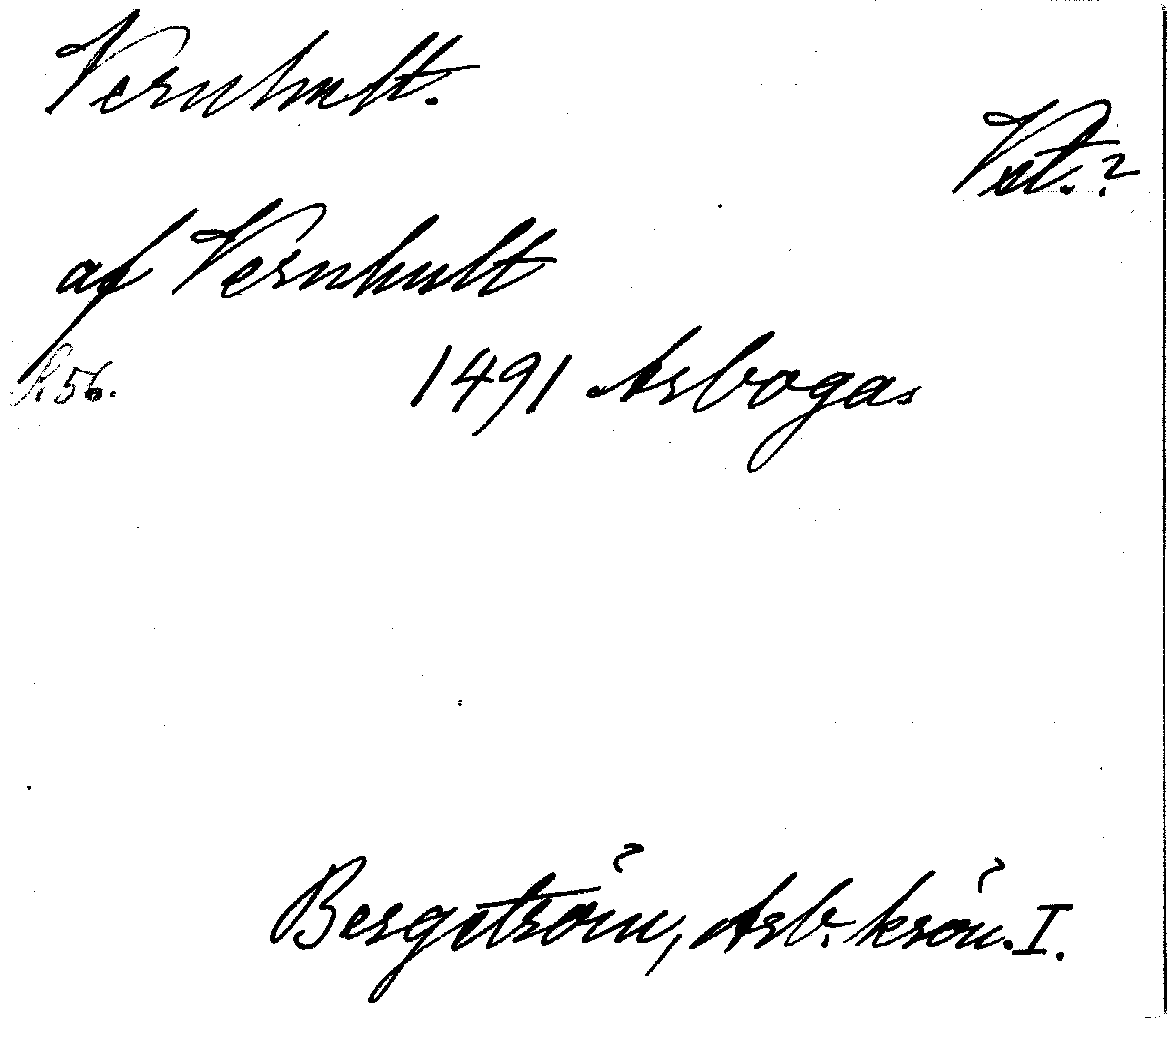 Vernhult.
Vst.?
af Vernhult
S. 56.
1491 Arboga.
Bergström, Arb. krön. I.